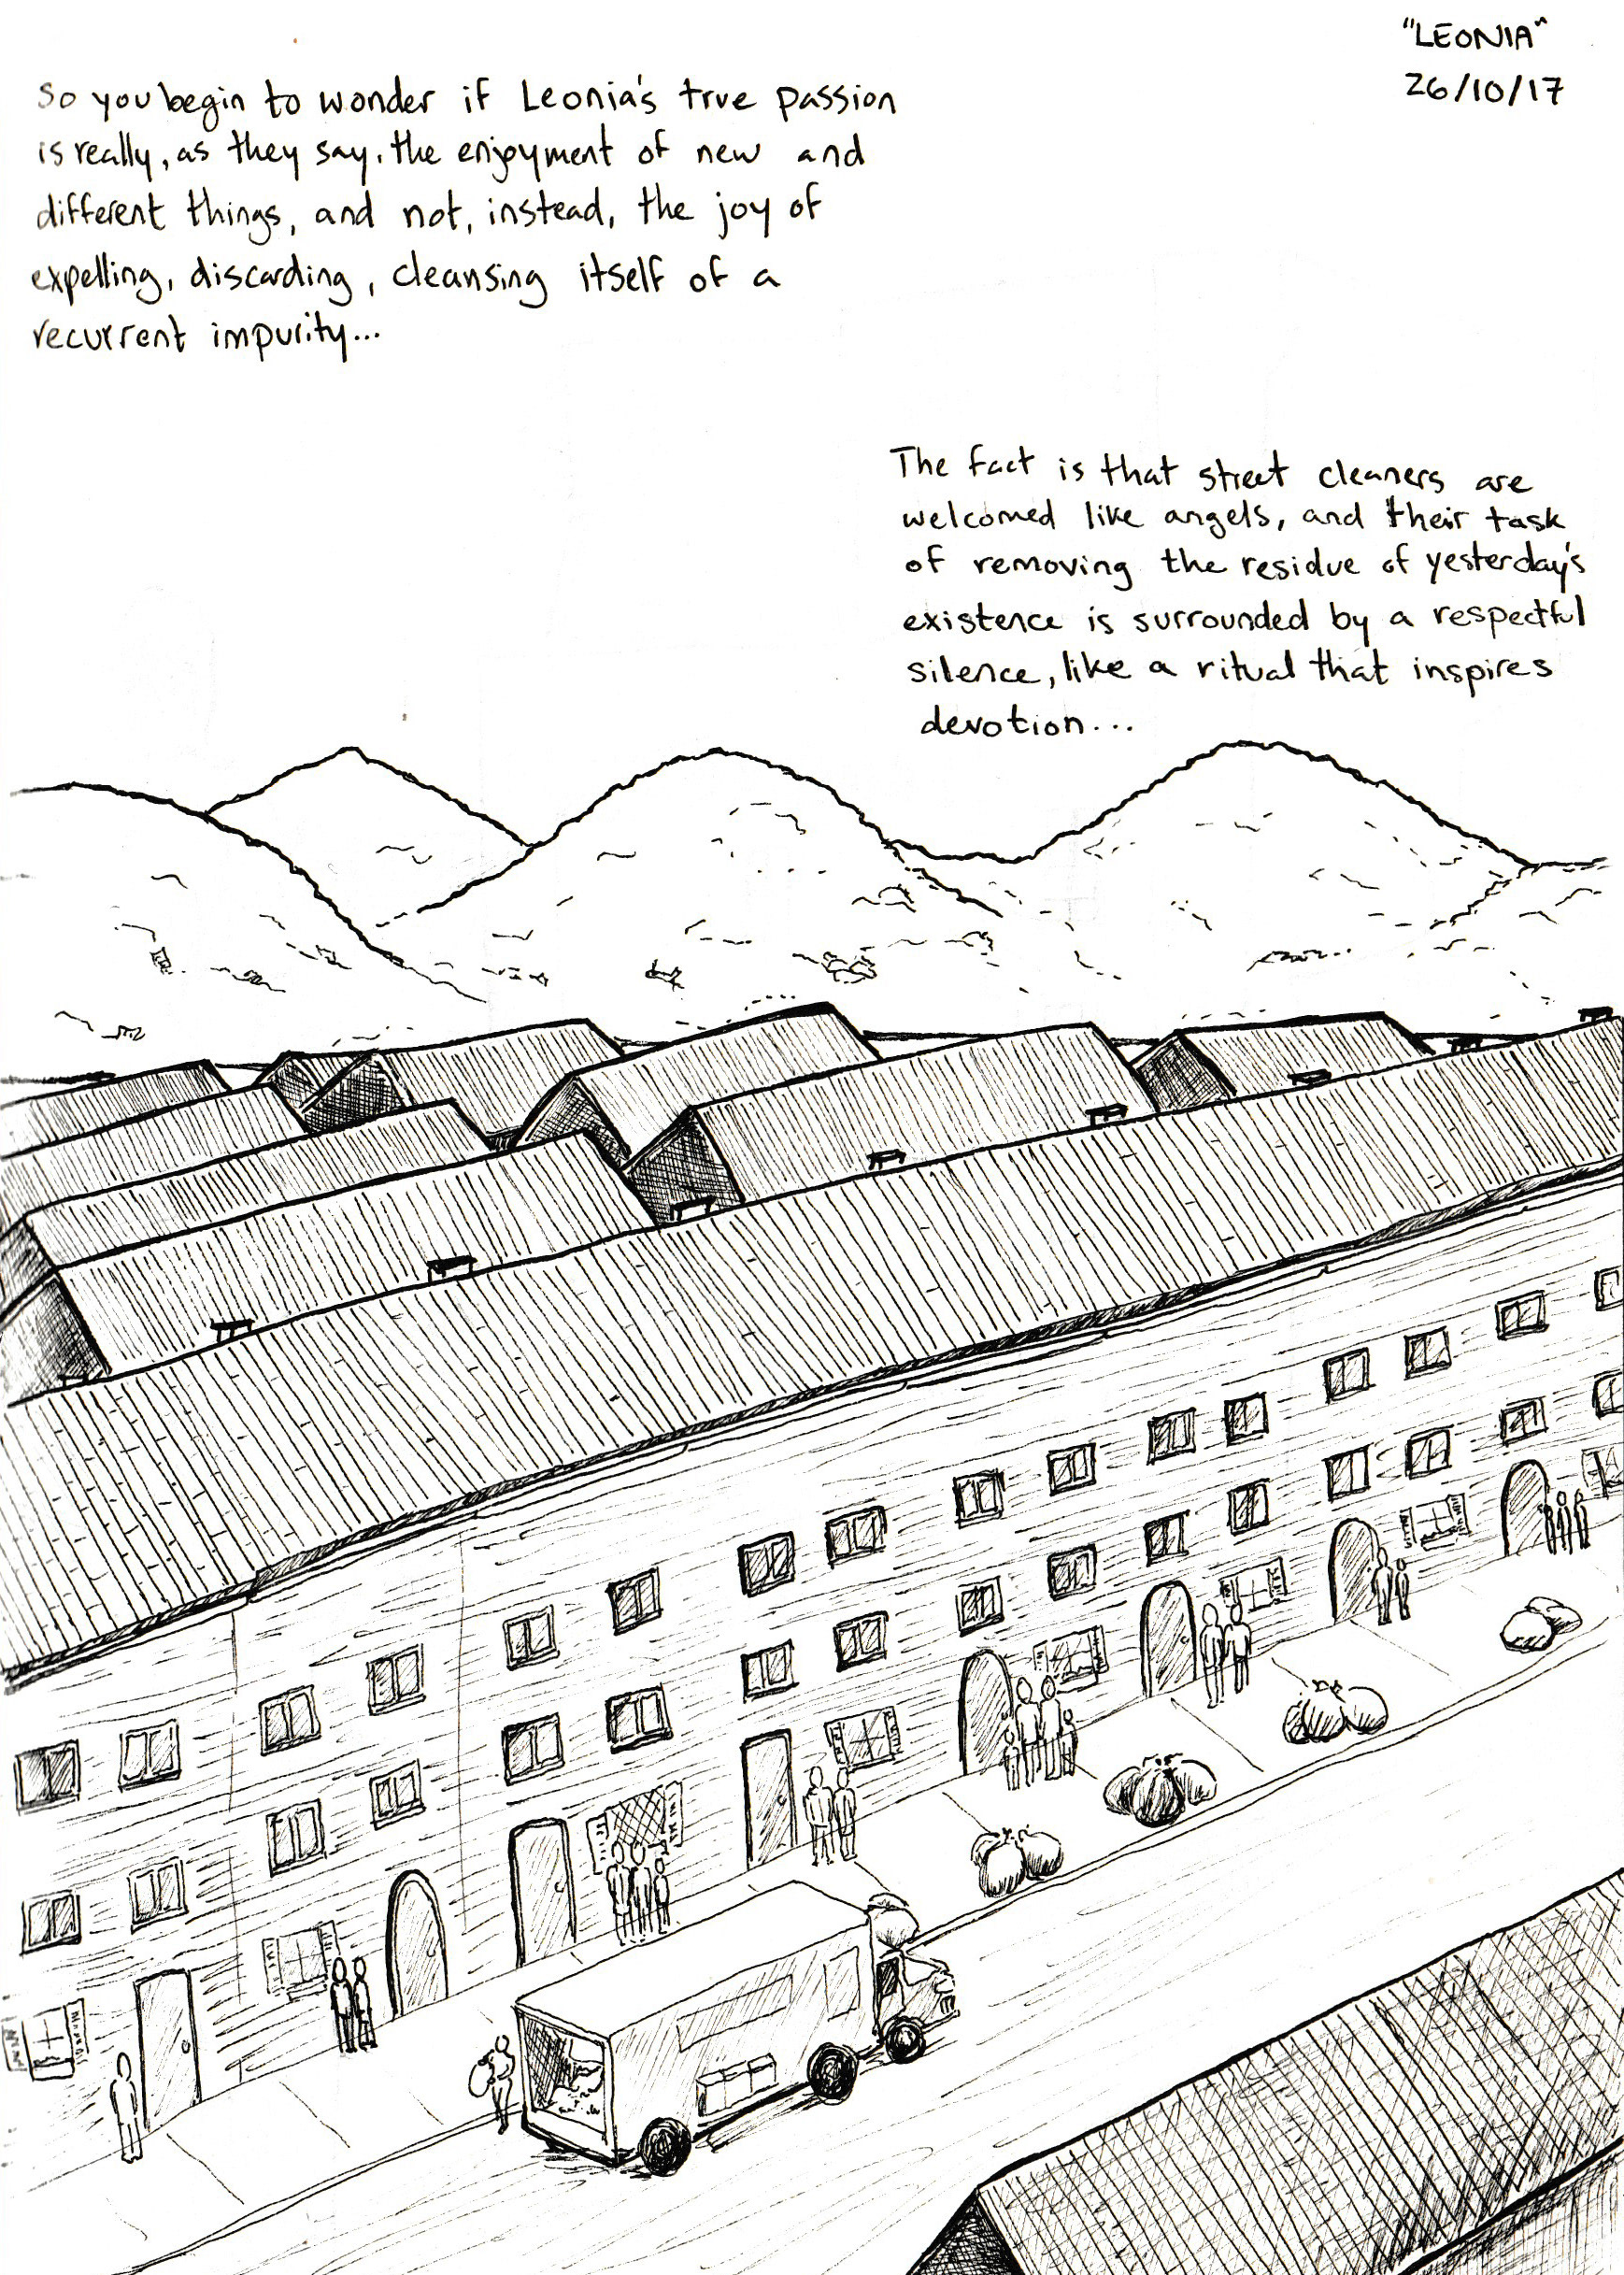 "LEONIA"
26/10/17
So you begin to wonder if Leonia's true passion
is really, as they say, the enjoyment of new and
different things, and not, instead, the joy of
expelling, discarding, cleansing itself of a
recurrent impurity...
The fact is that street cleaners are
welcomed like angels, and their task
of removing the residue of yesterday's
existence is surrounded by a respectful
silence, like a ritual that inspires
devotion...